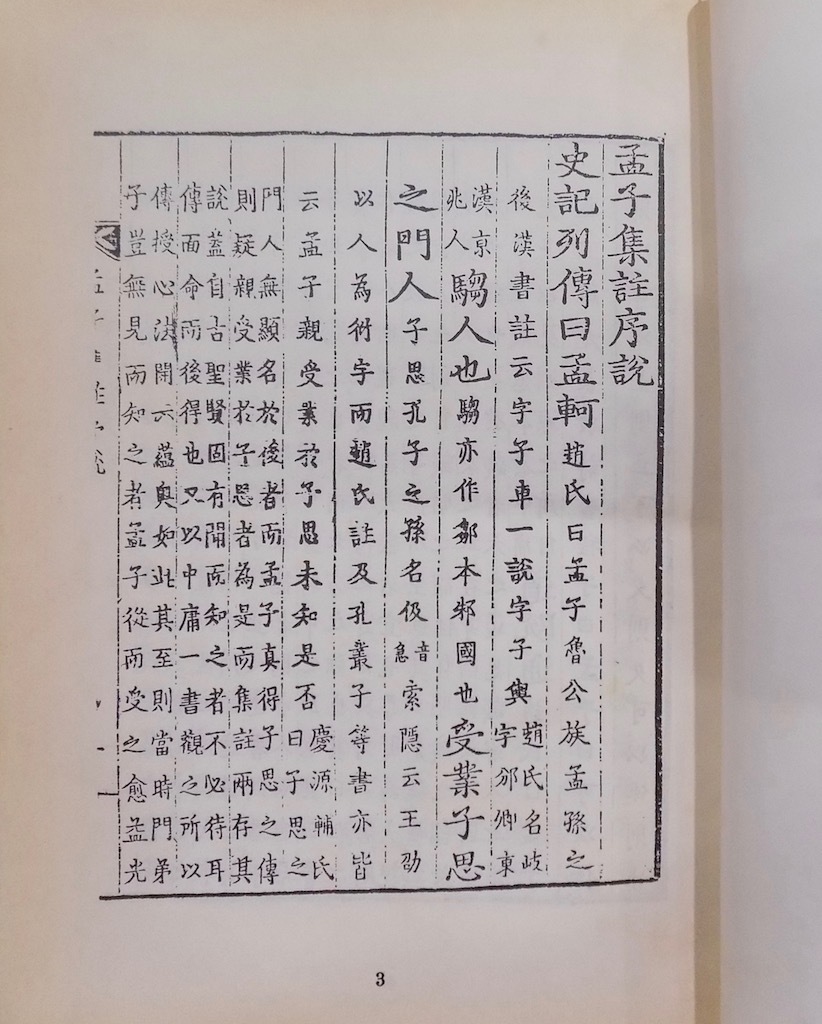 孟子集註序說
史記列傳曰孟軻趙氏曰孟子魯公族孟孫之
後漢書註云字子車一說字子輿趙氏名岐字邠卿東
漢京兆人騶人也騶亦作鄒本邾國也受業子思
之門人子思孔子之孫名伋音急索隱云王劭
以人為衍字而趙氏註及孔叢子等書亦皆
云孟子親受業於子思未知是否慶源輔氏曰子思之
門人無顯名於後者而孟子真得子思之傳
則疑親受業於子思者為是而集註兩存其
說蓋自古聖賢固有聞而知之者不必待耳
傳面命而後得也又以中庸一書觀之所以
傳授心法開示蘊奧如此其至則當時門弟
子豈無見而知之者孟子從而受之愈益光
3